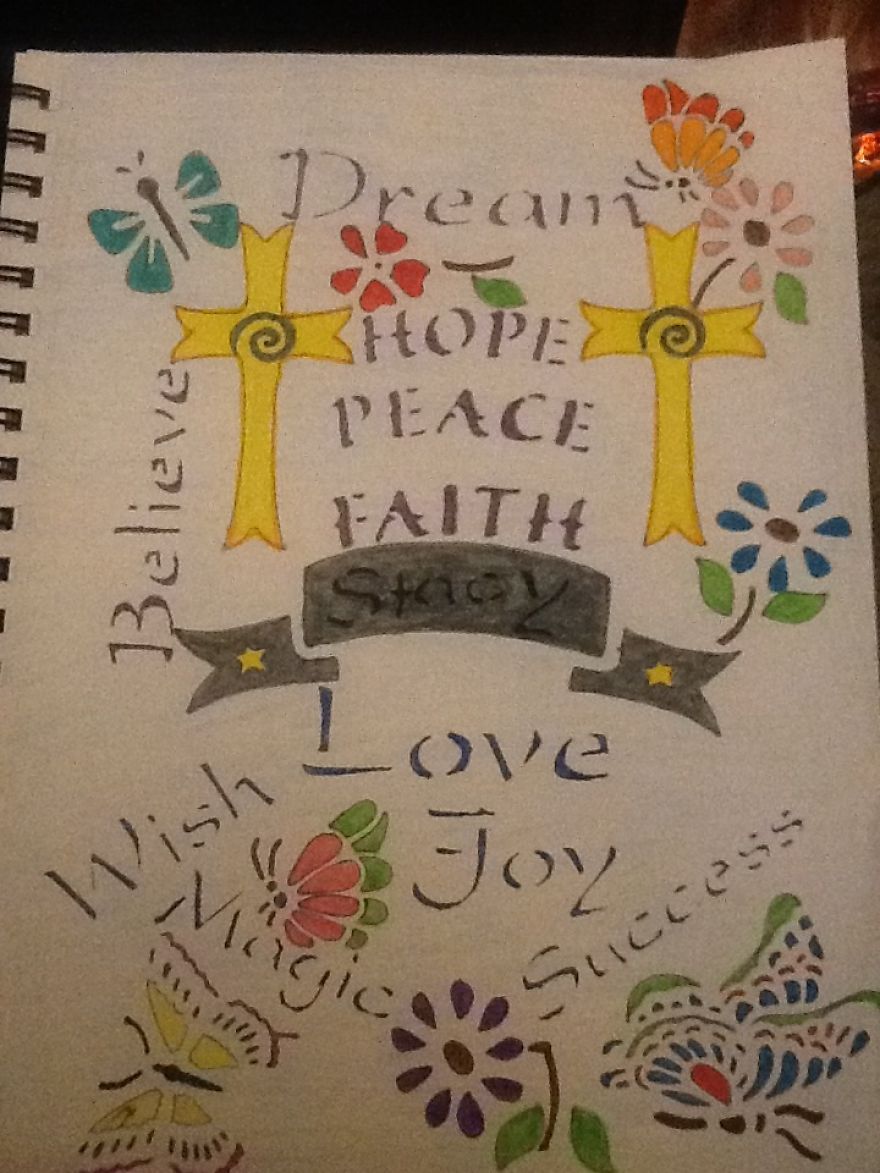 Dream
HOPE
Believe
PEACE
FAITH
Stacy
Love
Wish
Joy
Magic
Success